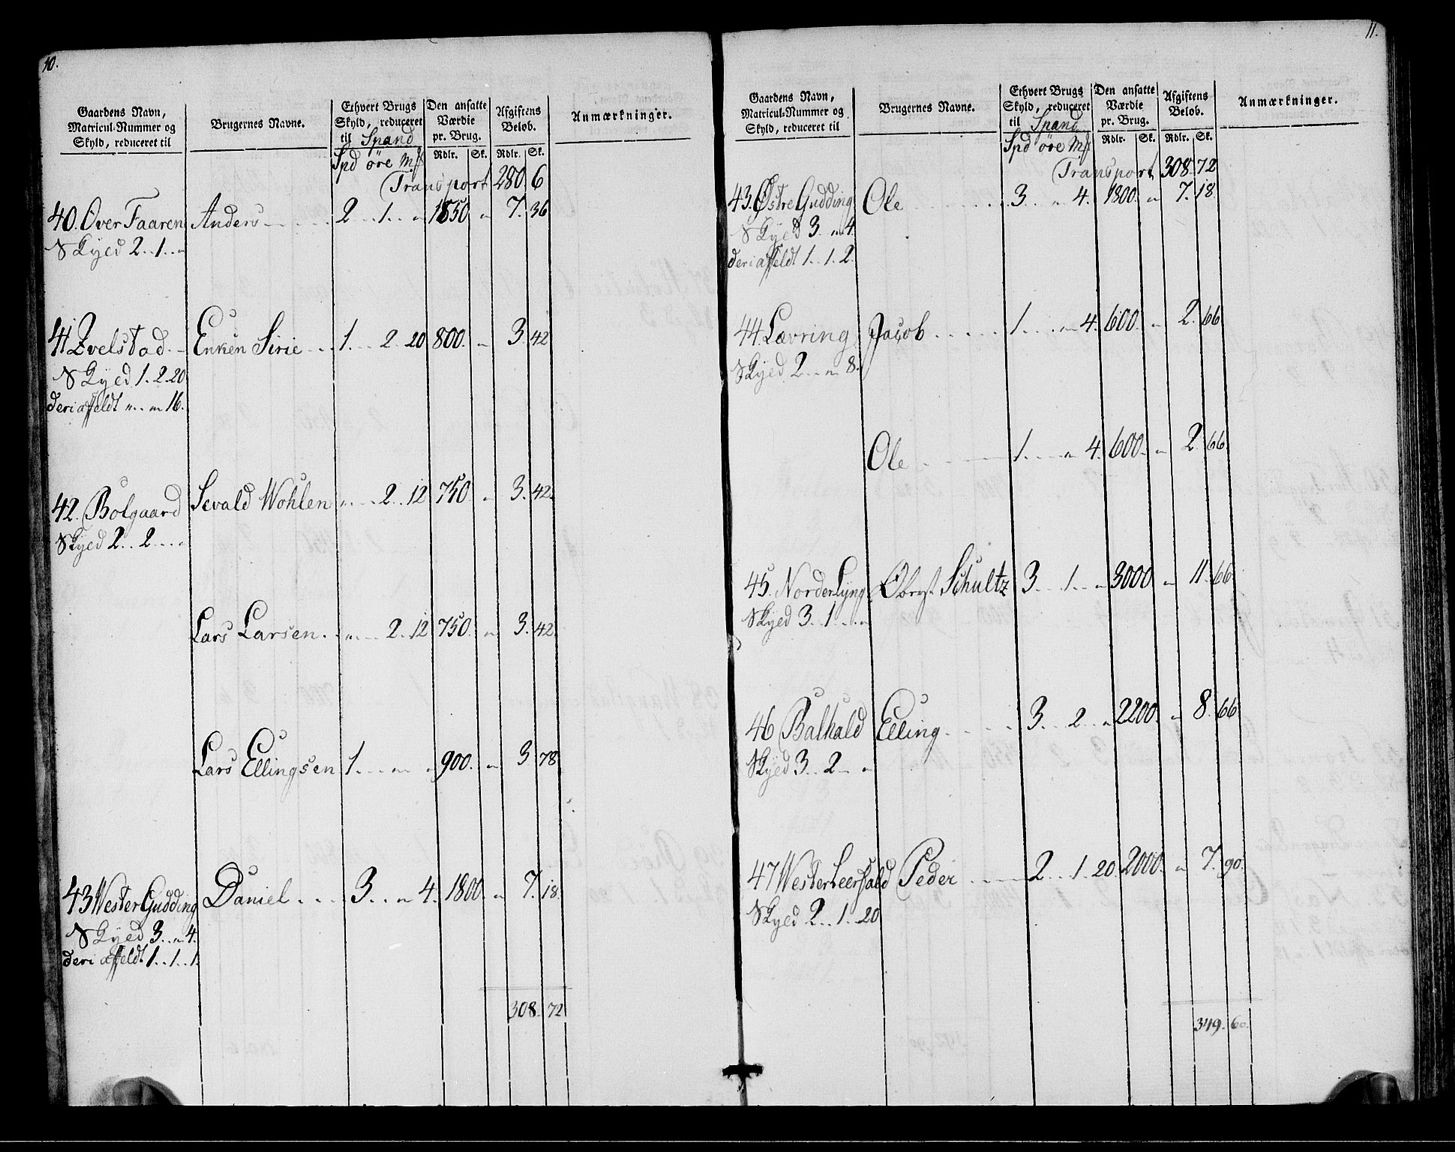 10.
Gaardens Navn, Matricul-Nummer og Skyld, reduceret til | Brugernes Navne. | Ethvert Brugs Skyld, reduceret til Spand Spd øre Mf | Den ansatte Værdie pr. Brug. Rdlr. Sk. | Afgiftens Beløb. Rdlr. Sk. | Anmærkninger.
Transport 280 6
40. Over Faaren Anders 2 . 1 . „ 1850 „ 7. 36
Skyld 2 . 1 . „
41. Evelstad Enken Sirie 1 . 2 . 20 800 „ 3. 42
Skyld 1 . 2 . 20
deri affældt „ . „ 16.
42. Bolgaard Sevald Wohlen „ . 2 . 12 750 „ 3. 42
Skyld 2 . 2 . „
Lars Larsen „ . 2 . 12 750 „ 3. 42
Lars Ellingsen 1 . „ . „ 900 „ 3. 78
43 Wester Gudding Daniel 3 . „ 4. 1800 „ 7. 18
Skyld 3 . „ 4.
deri affældt 1 . 1 . 1.
308. 72
11.
Gaardens Navn, Matricul-Nummer og Skyld, reduceret til | Brugernes Navne. | Ethvert Brugs Skyld, reduceret til Spand Spd øre Mf | Den ansatte Værdie pr. Brug. Rdlr. Sk. | Afgiftens Beløb. Rdlr. Sk. | Anmærkninger.
Transport 308. 72
43. Østre Gudding Ole 3 . 4. 1800 „ 7. 18
Skyld 3 . „ 4.
deri affeldt 1 . 1 . 2.
44. Lævring Jacob 1 . „ 4. 600 „ 2. 66
Skyld 2 . „ 8.
Ole 1 . „ 4. 600 „ 2. 66
45. Norder Lyng Obrist Schultz 3 . 1 . „ 3000 „ 11. 66
Skyld 3 . 1 . „
46 Balhald Elling 3 . 2 . „ 2200 „ 8. 66
Skyld 3 . 2 . „
47 Wester Leersald Peder 2 . 1 . 20 2000 „ 7. 90
Skyld 2 . 1 . 20
349. 60